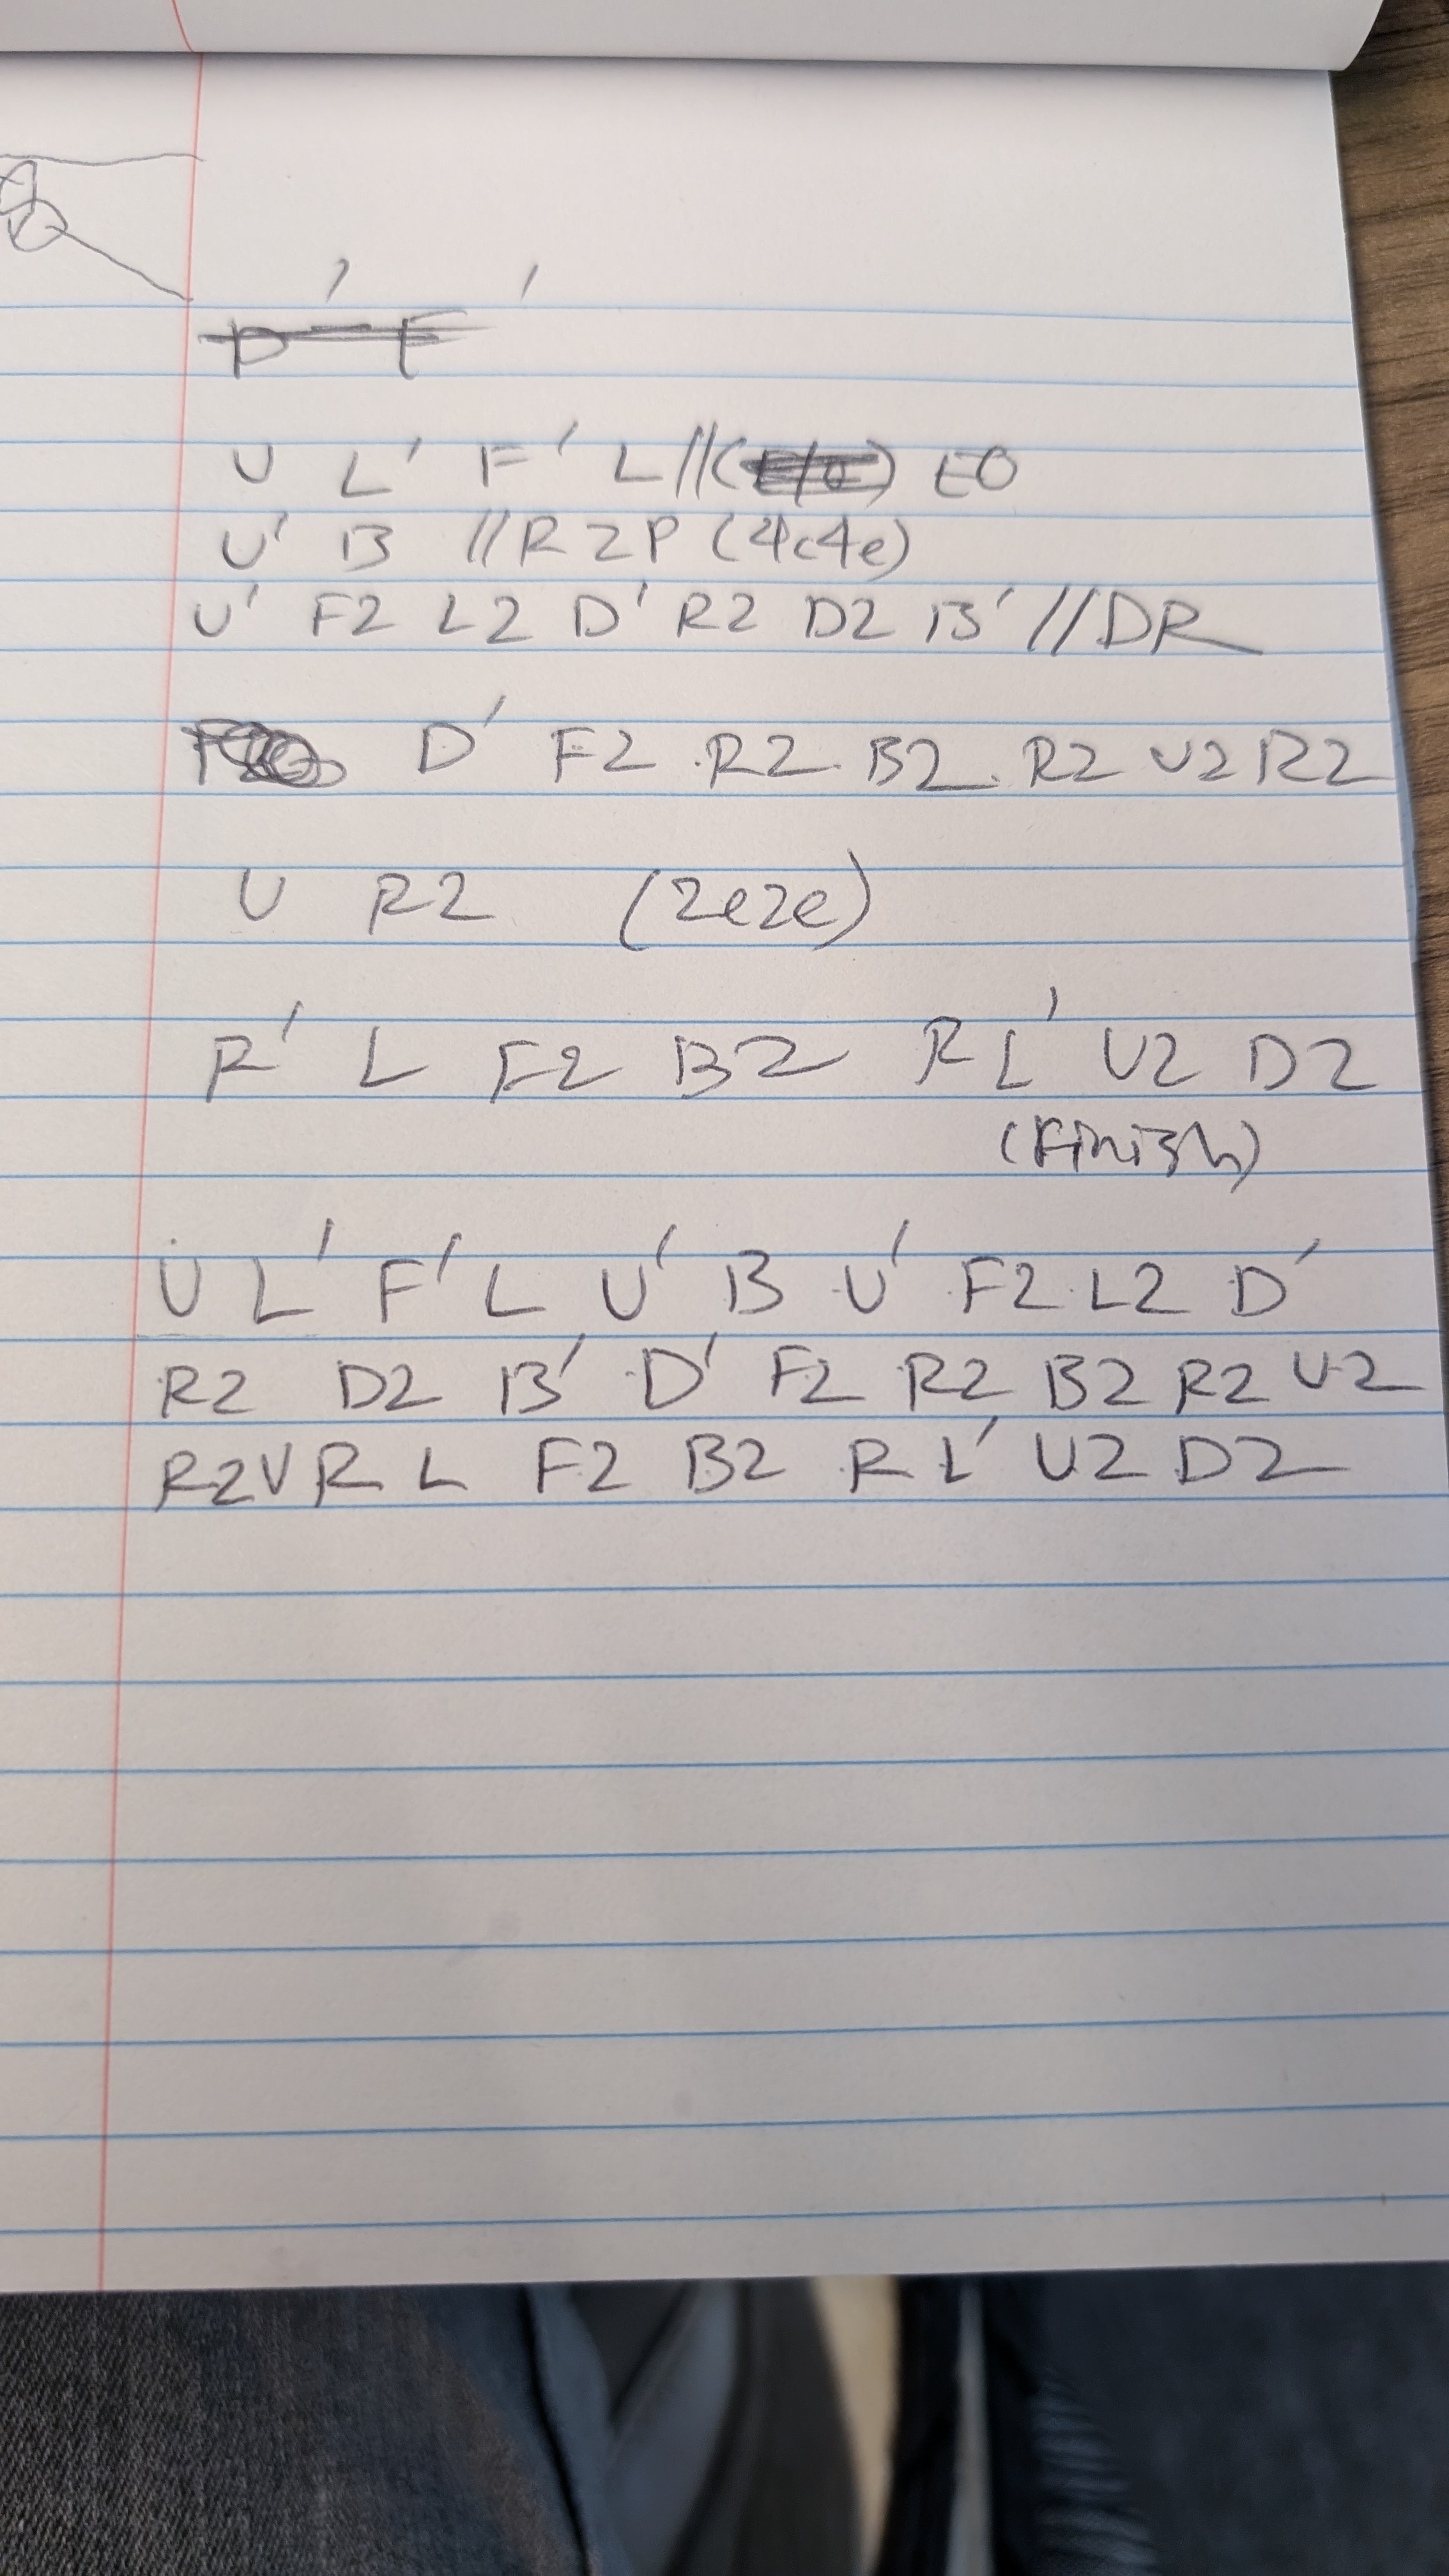 D' F'
U L' F' L //( ) EO
U' B //RZP (4c4e)
U' F2 L2 D' R2 D2 B' //DR
D' F2 R2 B2 R2 U2 R2
U R2 (2e2e)
R' L F2 B2 R L' U2 D2
(Finish)
U L' F' L U' B U' F2 L2 D'
R2 D2 B' D' F2 R2 B2 R2 U2
R2 U R L F2 B2 R L' U2 D2